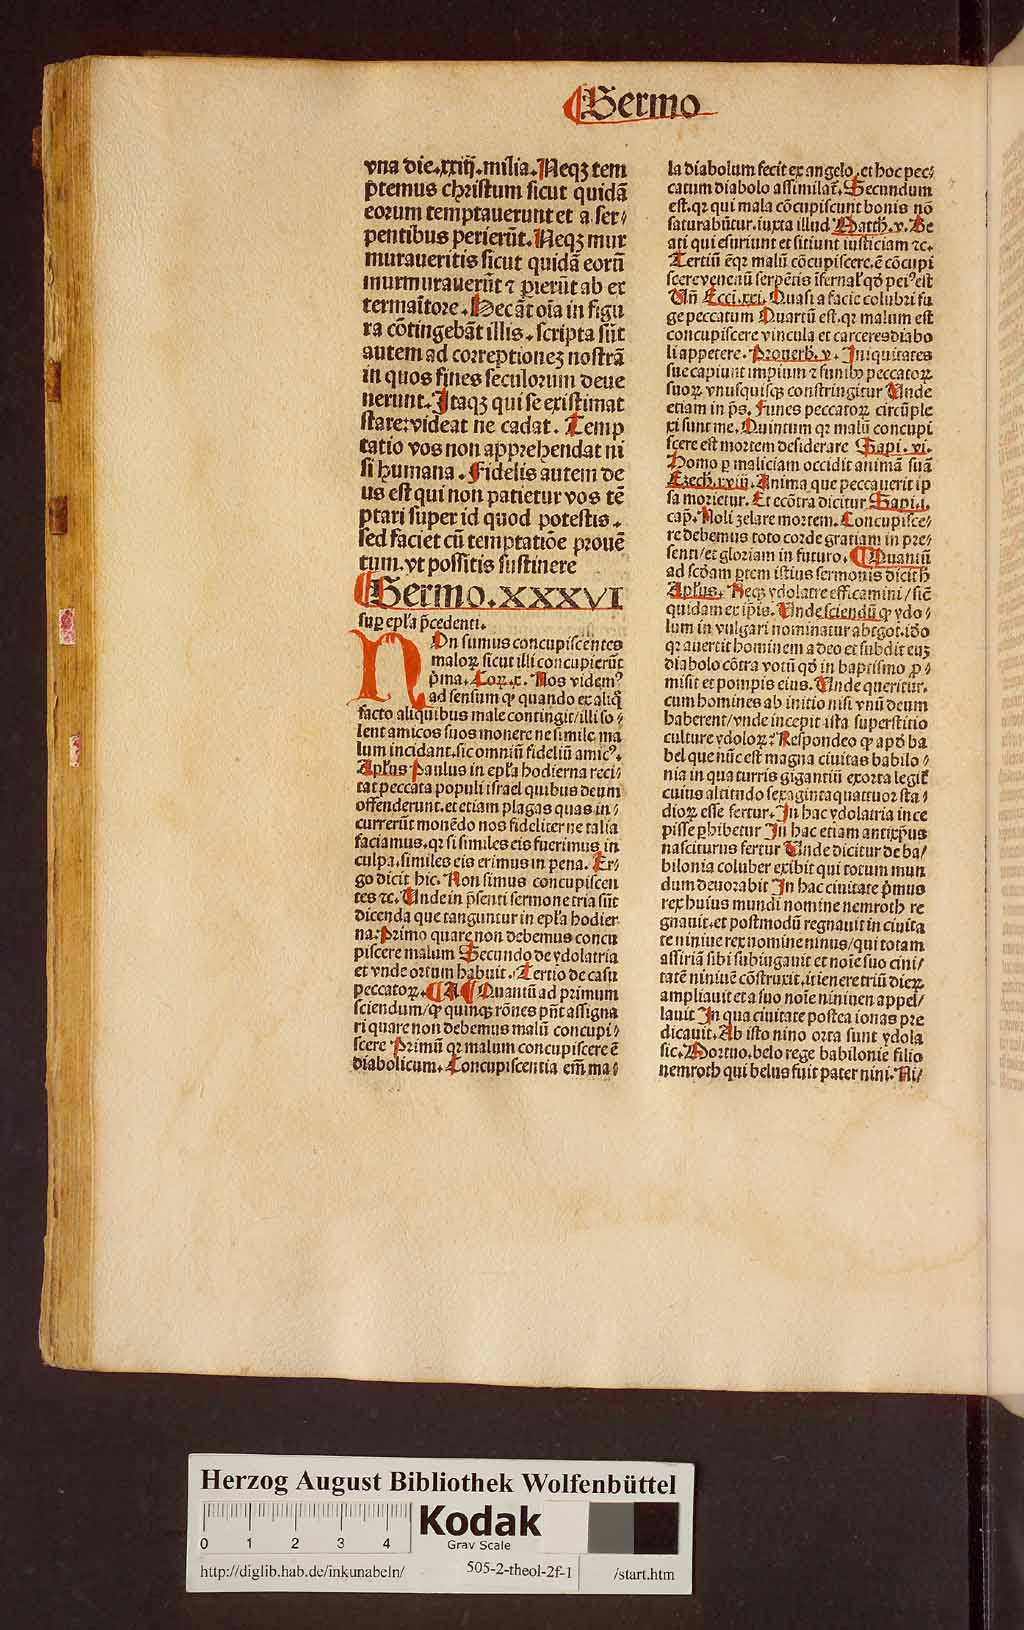 Sermo
vna die.xxiij.milia.Neqꝫ tem
ptemus christum sicut quidā
eorum temptauerunt et a ser⸗
pentibus perierūt.Neqꝫ mur
muraueritis sicut quidā eorū
murmurauerūt ⁊ ꝑierūt ab ex
termiatore.Hec āt oīa in figu
ra cōtingebāt illis.scripta sūt
autem ad correptionez nostrā
in quos fines seculorum deue
nerunt.Itaqꝫ qui se existimat
stare:videat ne cadat. Temp
tatio vos non apprehendat ni
si humana. Fidelis autem de
us est qui non patietur vos tē
ptari super id quod potestis.
sed faciet cū temptatiōe prouē
tum.vt possitis sustinere
Sermo.XXXVI
suꝑ epl'a p̄cedenti.
NOn sumus concupiscentes
maloꝝ sicut illi concupierūt
p̄ma.Coꝝ.x. Nos videmꝰ
ad sensum ꝙ quando ex aliq̄
facto aliquibus male contingit/illi so⸗
lent amicos suos monere ne simile ma
lum incidant.sic omniū fideliū amicꝰ.
Apl'us Paulus in epl'a hodierna reci⸗
tat peccata populi israel quibus deum
offenderunt.et etiam plagas quas in⸗
currerūt monēdo nos fideliter ne talia
faciamus.qꝛ si similes eis fuerimus in
culpa.similes eis erimus in pena. Er⸗
go dicit hic. Non simus concupiscen
tes ⁊c. Unde in p̄senti sermone tria sūt
dicenda que tanguntur in epl'a hodier
na:Primo quare non debemus concu
piscere malum Secundo de ydolatria
et vnde ortum habuit. Tertio de casu
peccatoꝝ. A Quantū ad primum
sciendum/ꝙ quinqꝫ rōnes pn̄t assigna
ri quare non debemus malū concupi⸗
scere Primū qꝛ malum concupiscere ē
diabolicum. Concupiscentia em̄ ma⸗
la diabolum fecit ex angelo.et hoc pec⸗
catum diabolo assimilat̄. Secundum
est.qꝛ qui mala cōcupiscunt bonis nō
saturabūtur.iuxta illud Matth.v. Be
ati qui esuriunt et sitiunt iusticiam ⁊c.
Tertiū ē qꝛ malū cōcupiscere.ē cōcupi
scere venenū serpētis
Vn̄ Ecci.xxi. Quasi a facie colubri fu
ge peccatum Quartū est.qꝛ malum est
concupiscere vincula et carceres diabo
li appetere. Prouerb.v. Iniquitates
sue capiunt impium ⁊ funibꝰ peccatoꝝ
suoꝝ vnusquisqꝫ constringitur Unde
etiam in ps. Funes peccatoꝝ circūple
xi sunt me. Quintum qꝛ malū concupi
scere est mortem desiderare Sapi.vi.
Homo ꝑ maliciam occidit animā suā
Ezech.xviij. Anima que peccauerit ip
sa morietur. Et ecōtra dicitur Sapi.i.
cap̄. Noli zelare mortem. Concupisce⸗
re debemus toto corde gratiam in pre⸗
senti/et gloriam in futuro. Quantū
ad scdam ꝑtem istius sermonis dicit hic
Apl'us. Neqꝫ ydolatre efficamini/sic̄
quidam ex ip̄is. Unde sciendū ꝙ ydo⸗
lum in vulgari nominatur abtgot.iō
qꝛ auertit hominem a deo et subdit euꝫ
diabolo cōtra votū qd̓ in baptismo ꝓ⸗
misit et pompis eius. Unde queritur.
cum homines ab initio nisi vnū deum
haberent/vnde incepit ista superstitio
culture ydoloꝝ? Respondeo ꝙ apd̓ ba
bel que nūc est magna ciuitas babilo⸗
nia in qua turris gigantiū exorta legit̄
cuius altitudo sexaginta quattuor sta⸗
dioꝝ esse fertur. In hac ydolatria ince
pisse ꝑhibetur In hac etiam antixp̄us
nasciturus fertur Unde dicitur de ba/
bilonia coluber exibit qui totum mun
dum deuorabit In hac ciuitate p̄mus
rex huius mundi nomine nemroth re
gnauit.et postmodū regnauit in ciuita
te niniue rex nomine ninus/qui totam
assiriā sibi subiugauit et noīe suo ciui/
tatē niniuē cōstruxit.itinere triū dieꝝ
ampliauit et a suo noīe niniuen appel/
lauit In qua ciuitate postea ionas pre
dicauit. Ab isto nino orta sunt ydola
sic. Mortuo.belo rege babilonie filio
nemroth qui belus fuit pater nini. Ni/
Herzog August Bibliothek Wolfenbüttel
Kodak
Gray Scale
0 1 2 3 4
http://diglib.hab.de/inkunabeln/ 505-2-theol-2f-1 /start.htm